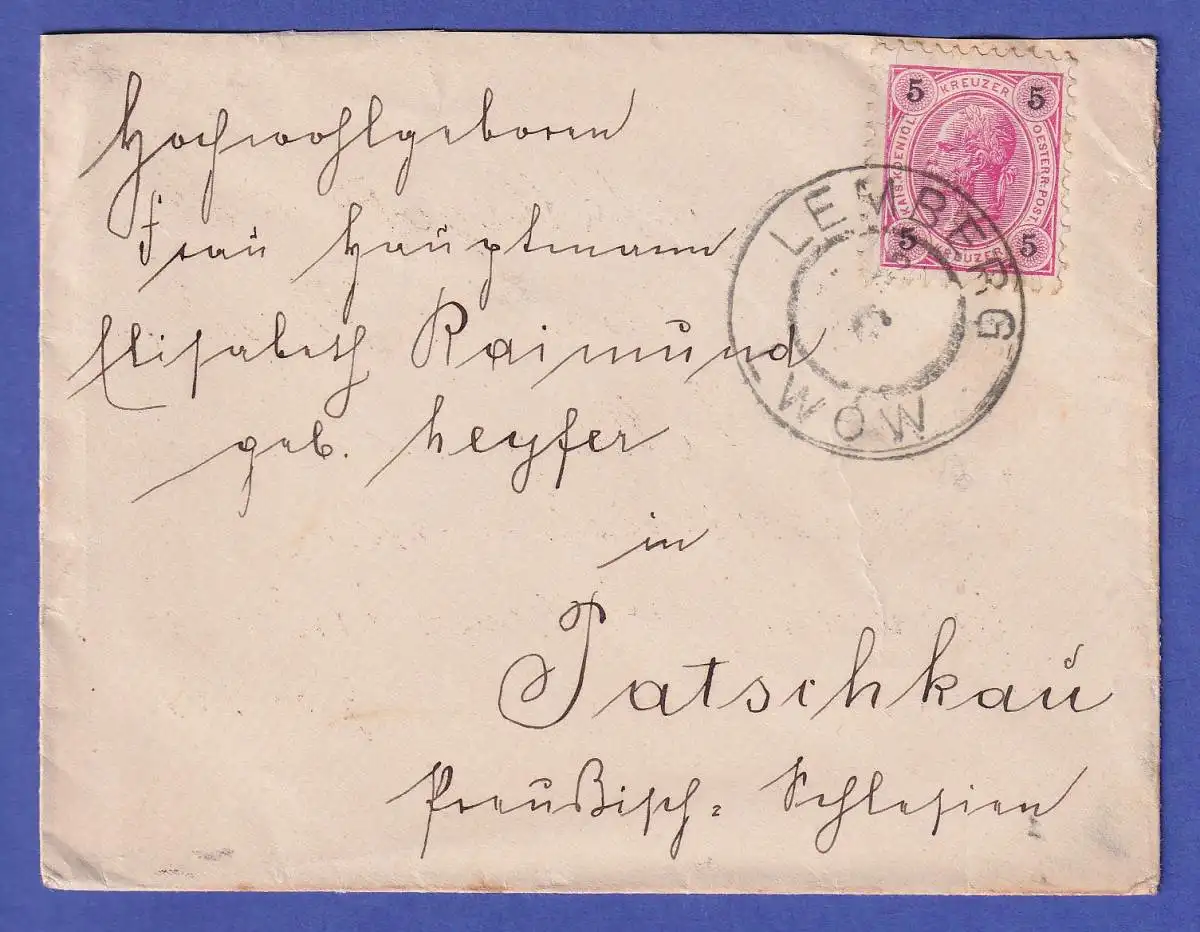 Hochwohlgeboren
Frau Hauptmann
Elisabeth Raimund
geb. Heyser
in
Patschkau
Preußisch-Schlesien
KREUZER
5 5
OESTERR-POST
5 5
LEMBERG
LWÓW